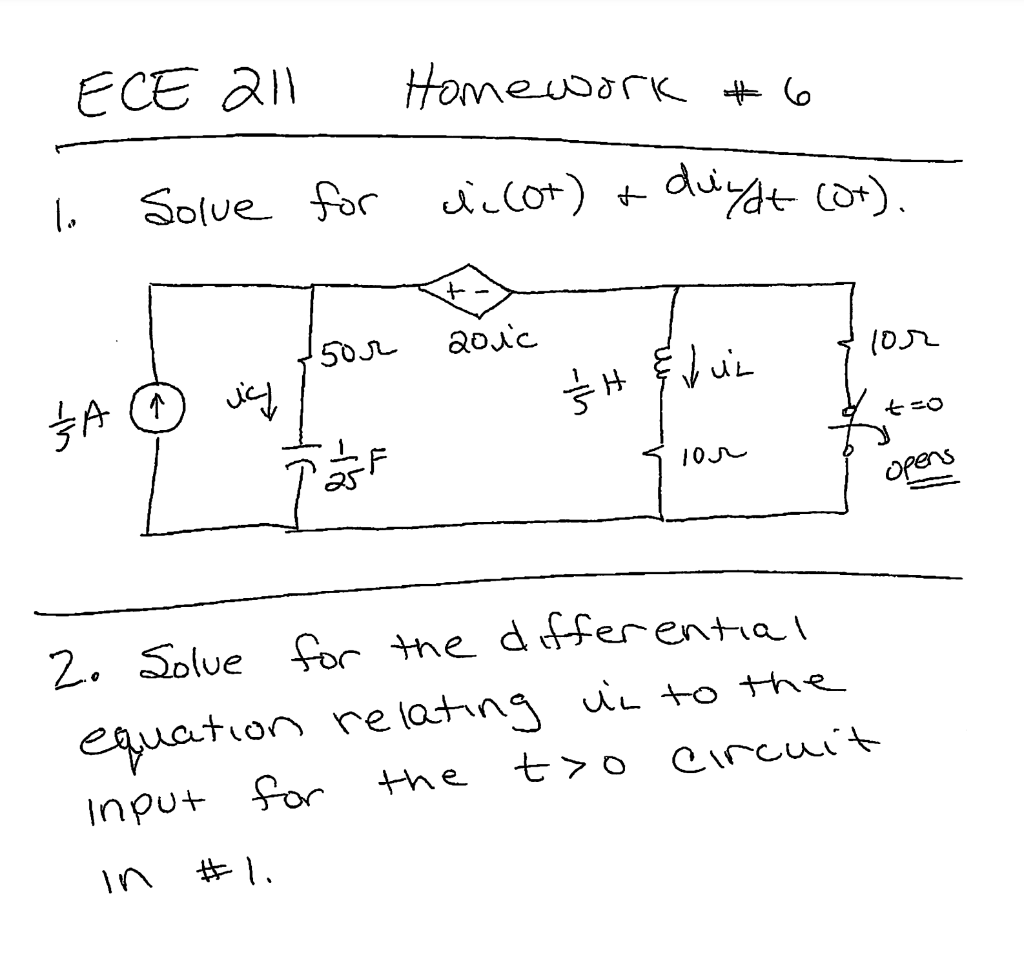 ECE 211 Homework # 6
1. Solve for iL(0+) + diL/dt (0+).
+ -
50Ω
20ic
10Ω
1/5 A
ic
1/5 H
iL
t=0
1/25 F
10Ω
opens
2. Solve for the differential
equation relating iL to the
input for the t>0 circuit
in #1.